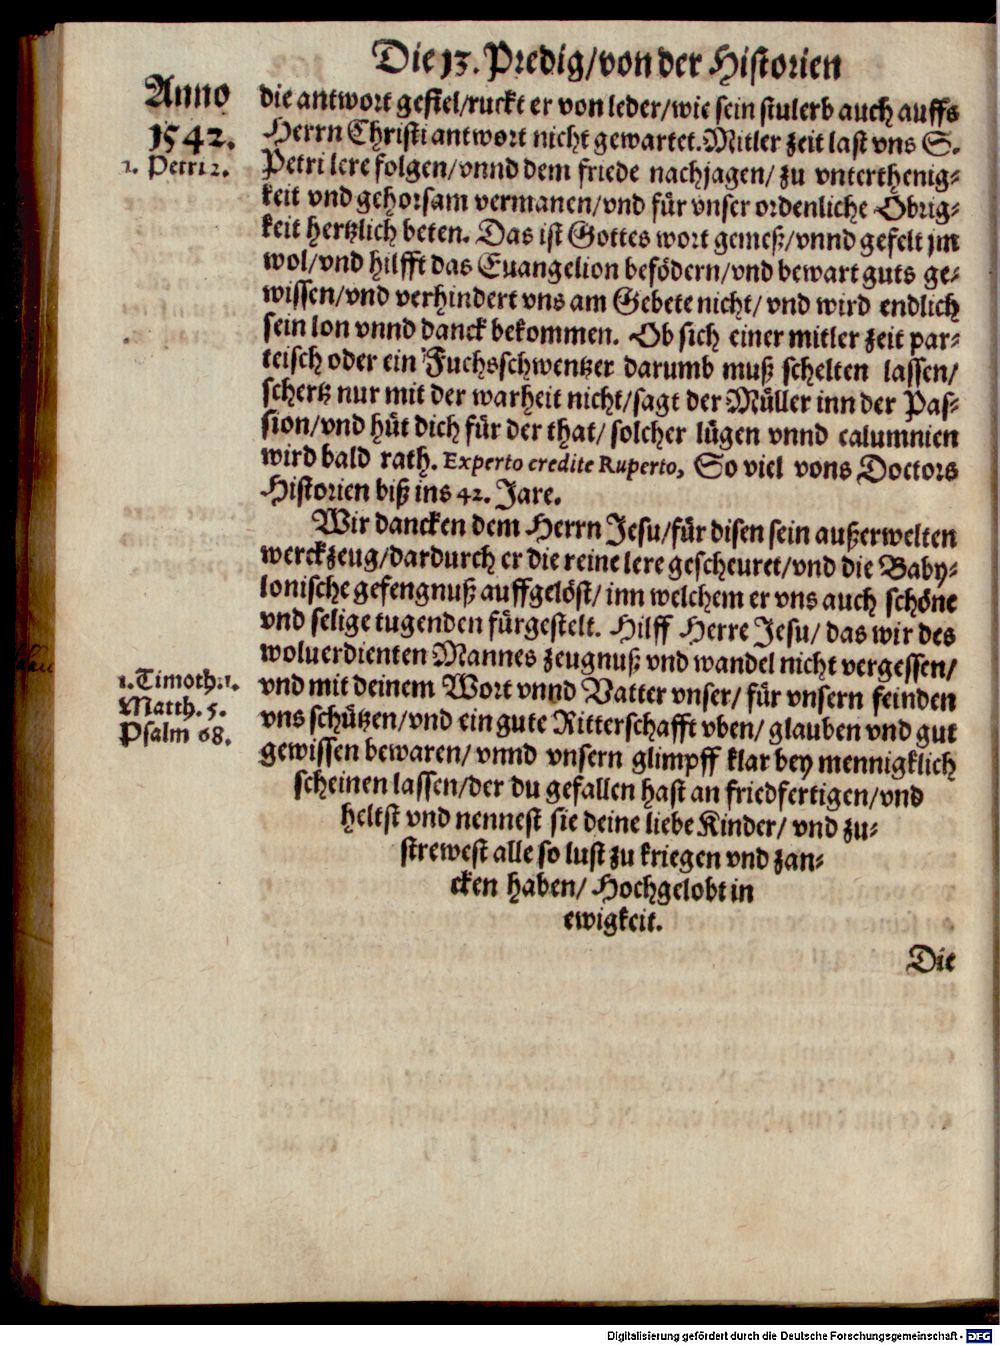 Die 13. Predig/von der Historien
Anno
1542.
1. Petri 2.
die antwort gefiel/ruckt er von leder/wie sein stulerb auch auffs
Herrn Christi antwort nicht gewartet. Mitler zeit last vns S.
Petri lere folgen/vnnd dem friede nachjagen/ zu vnterthenig-
keit vnd gehorsam vermanen/vnd für vnser ordenliche Obrig-
keit hertzlich beten. Das ist Gottes wort gemeß/vnnd gefelt jm
wol/vnd hilfft das Euangelion befödern/vnd bewart guts ge-
wissen/vnd verhindert vns am Gebete nicht/ vnd wird endlich
sein lon vnnd danck bekommen. Ob sich einer mitler zeit par-
teisch oder ein Fuchsschwentzer darumb muß schelten lassen/
schertz nur mit der warheit nicht/sagt der Müller inn der Pas-
sion/vnd hüt dich für der that/ solcher lügen vnnd calumnien
wird bald rath. Experto credite Ruperto, So viel vons Doctors
Historien biß ins 42. Jare.
Wir dancken dem Herrn Jesu/für disen sein außerwelten
werckzeug/dardurch er die reine lere gescheuret/vnd die Baby-
lonische gefengnuß auffgelöst/ inn welchem er vns auch schöne
vnd selige tugenden fürgestelt. Hilff Herre Jesu/ das wir des
woluerdienten Mannes zeugnuß vnd wandel nicht vergessen/
1. Timoth. 1.
Matth. 5.
Psalm 68.
vnd mit deinem Wort vnnd Vatter vnser/ für vnsern feinden
vns schützen/vnd ein gute Ritterschafft vben/ glauben vnd gut
gewissen bewaren/ vnnd vnsern glimpff klar bey mennigklich
scheinen lassen/der du gefallen hast an friedfertigen/vnd
heltst vnd nennest sie deine liebe Kinder/ vnd zu-
strewest alle so lust zu kriegen vnd zan-
cken haben/ Hochgelobt in
ewigkeit.
Die
Digitalisierung gefördert durch die Deutsche Forschungsgemeinschaft - DFG